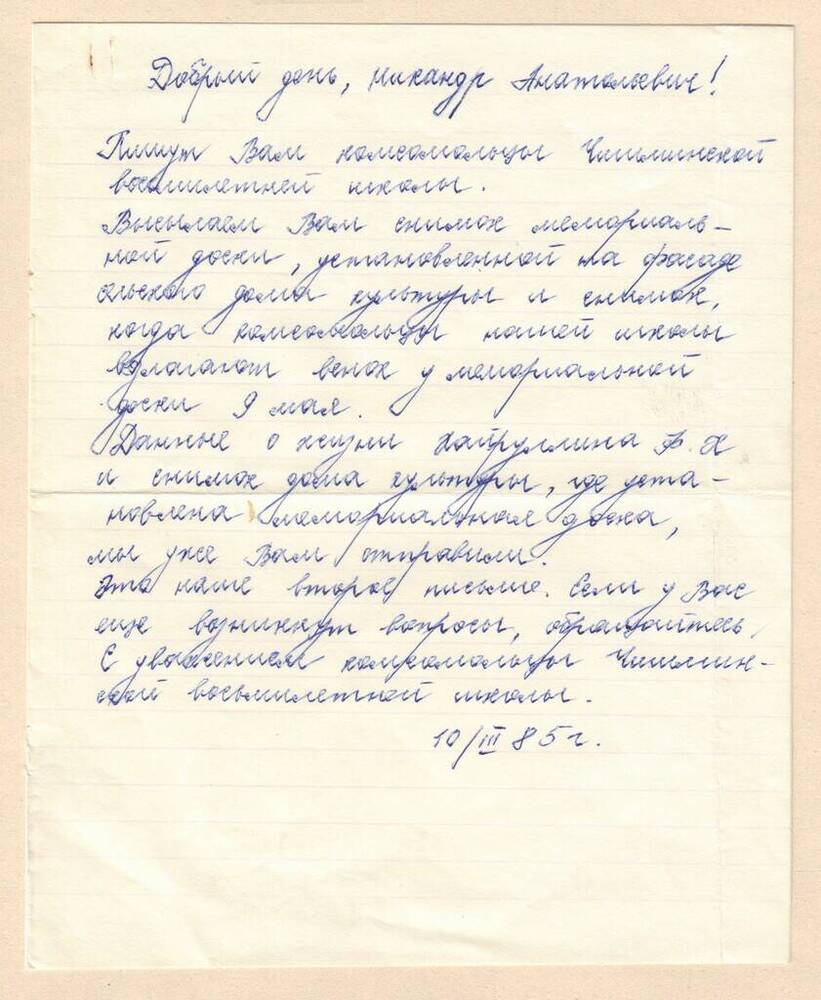 Добрый день, Никандр Анатольевич!
Пишут Вам комсомольцы Чишминской
восьмилетней школы.
Высылаем Вам снимок мемориаль-
ной доски, установленной на фасаде
сельского дома культуры и снимок,
когда комсомольцы нашей школы
возлагают венок у мемориальной
доски 9 мая.
Данные о жизни Хайруллина Ф. Х
и снимок дома культуры, где уста-
новлена мемориальная доска,
мы уже Вам отправили.
Это наше второе письмо. Если у Вас
еще возникнут вопросы, обращайтесь.
С уважением комсомольцы Чишмин-
ской восьмилетней школы.
10/III 85 г.